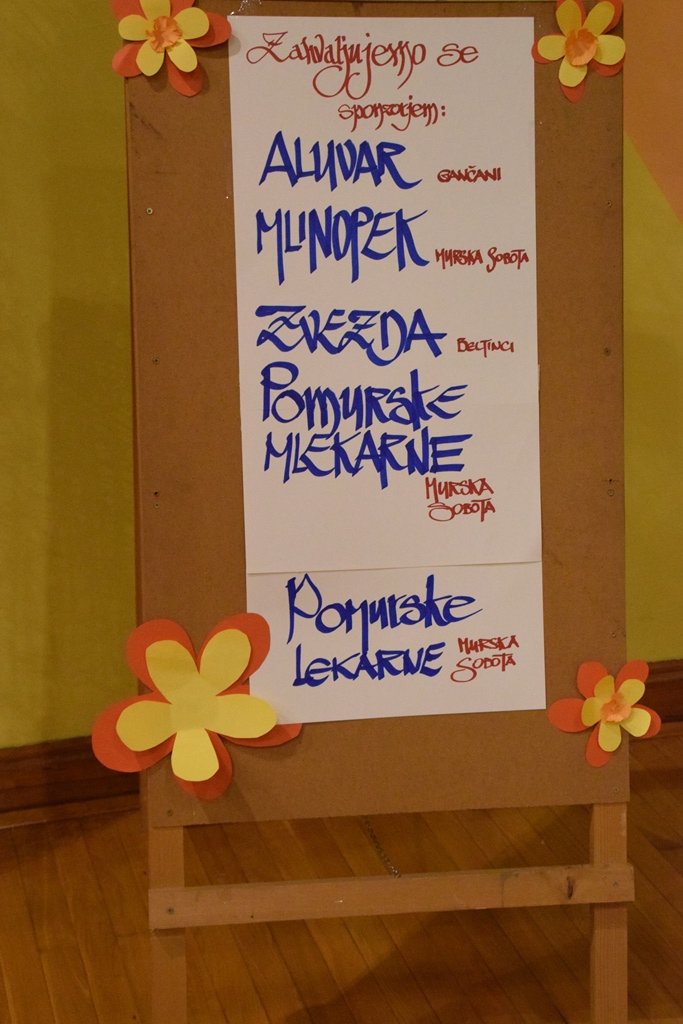 Zahvaljujemo se
sponzorjem:
ALUVAR GANČANI
MLINOPEK MURSKA SOBOTA
ZVEZDA BELTINCI
POMURSKE
MLEKARNE
MURSKA
SOBOTA
POMURSKE
LEKARNE MURSKA
SOBOTA